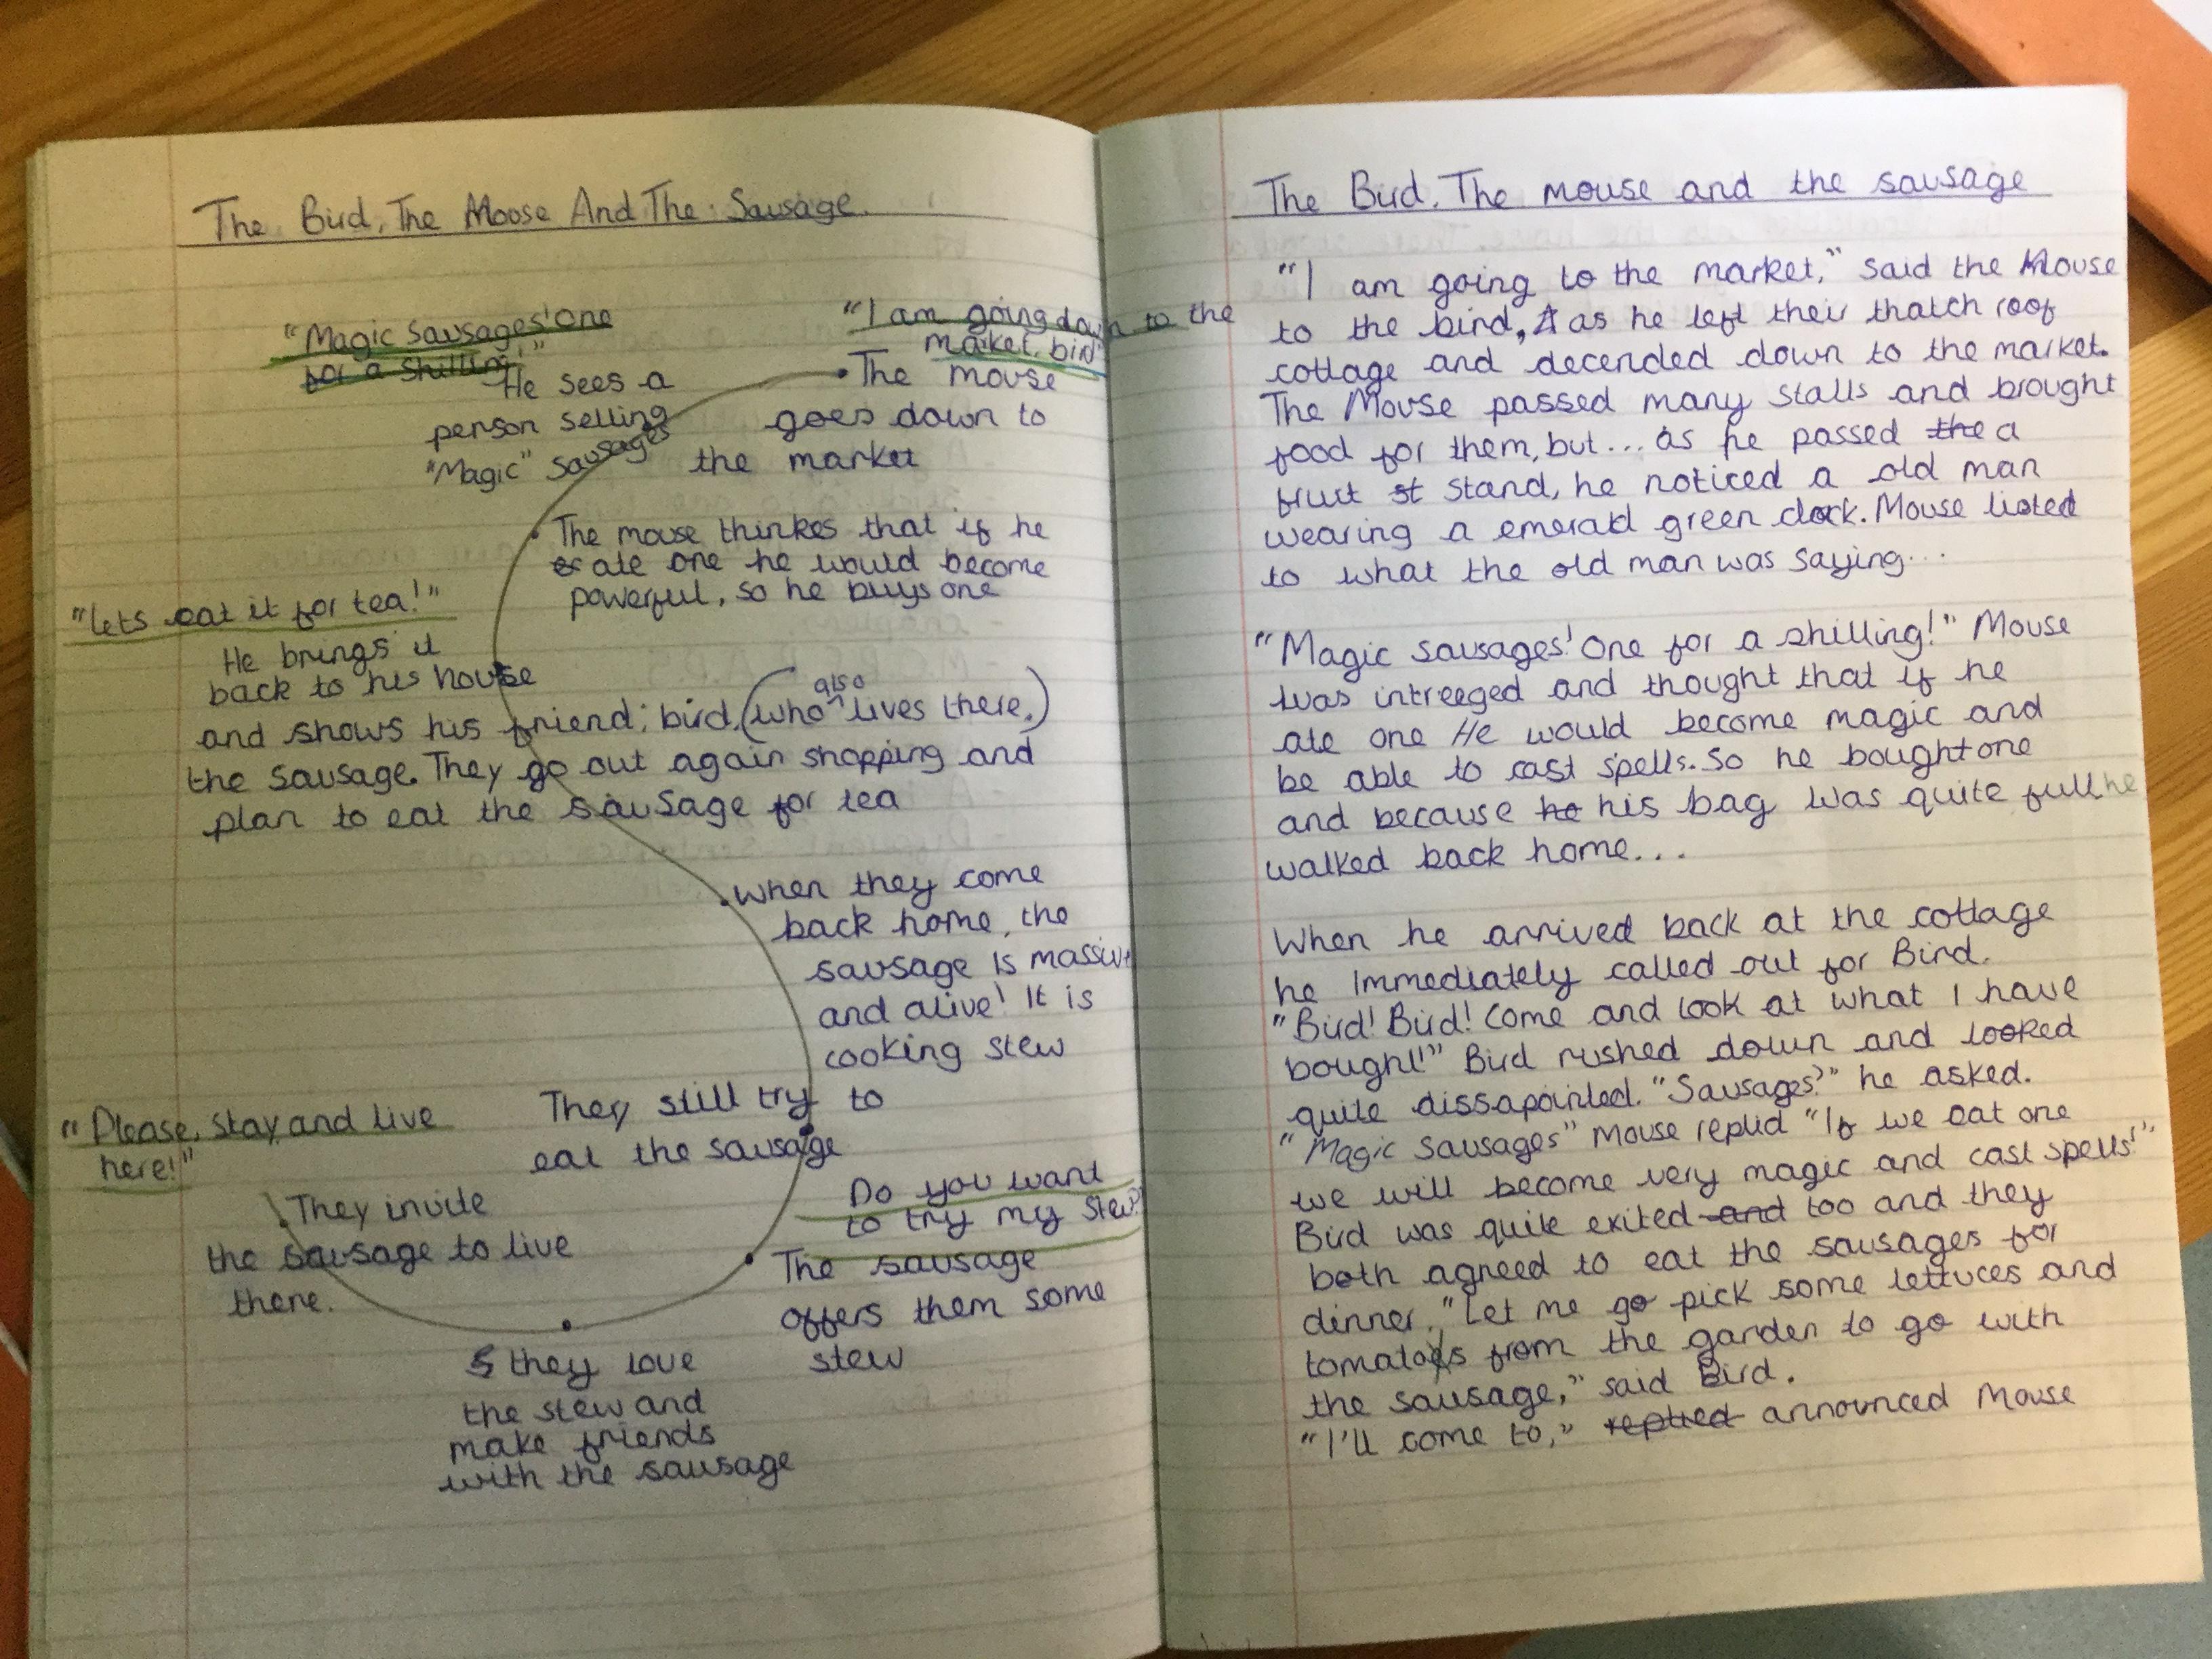 The Bird, The Moose And The Sausage.
"I am going down to the
market, bird"
The mouse
goes down to
the market
"Magic sausages! One
for a shilling!"
He sees a
person selling
"Magic" sausages
The mouse thinkes that if he
ate one he would become
powerful, so he buys one
"Lets eat it for tea!"
He brings it
back to his house
and shows his friend; bird, (who also lives there,)
the sausage. They go out again shopping and
plan to eat the sausage for tea
When they come
back home, the
sausage is massive
and alive! It is
cooking stew
They still try to
eat the sausage
Do you want
to try my stew?
The sausage
offers them some
stew
they love
the stew and
make friends
with the sausage
"Please, stay and live
here!"
They invite
the sausage to live
there.
The Bird, The mouse and the sausage
"I am going to the market," said the Mouse
to the bird, as he left their thatch roof
cottage and decended down to the market.
The Mouse passed many stalls and brought
food for them, but... as he passed the a
fruit st stand, he noticed a old man
wearing a emerald green clock. Mouse listed
to what the old man was saying...
"Magic sausages! One for a shilling!" Mouse
was intreeged and thought that if he
ate one He would become magic and
be able to cast spells. So he bought one
and because he his bag was quite full he
walked back home...
When he arrived back at the cottage
he immediately called out for Bird.
"Bird! Bird! Come and look at what I have
bought!" Bird rushed down and looked
quite dissapointed. "Sausages?" he asked.
"Magic sausages" Mouse replid "If we eat one
we will become very magic and cast spells!"
Bird was quite exited and too and they
both agreed to eat the sausages for
dinner. "Let me go pick some lettuces and
tomatos from the garden to go with
the sausage," said Bird.
"I'll come to," replied announced Mouse